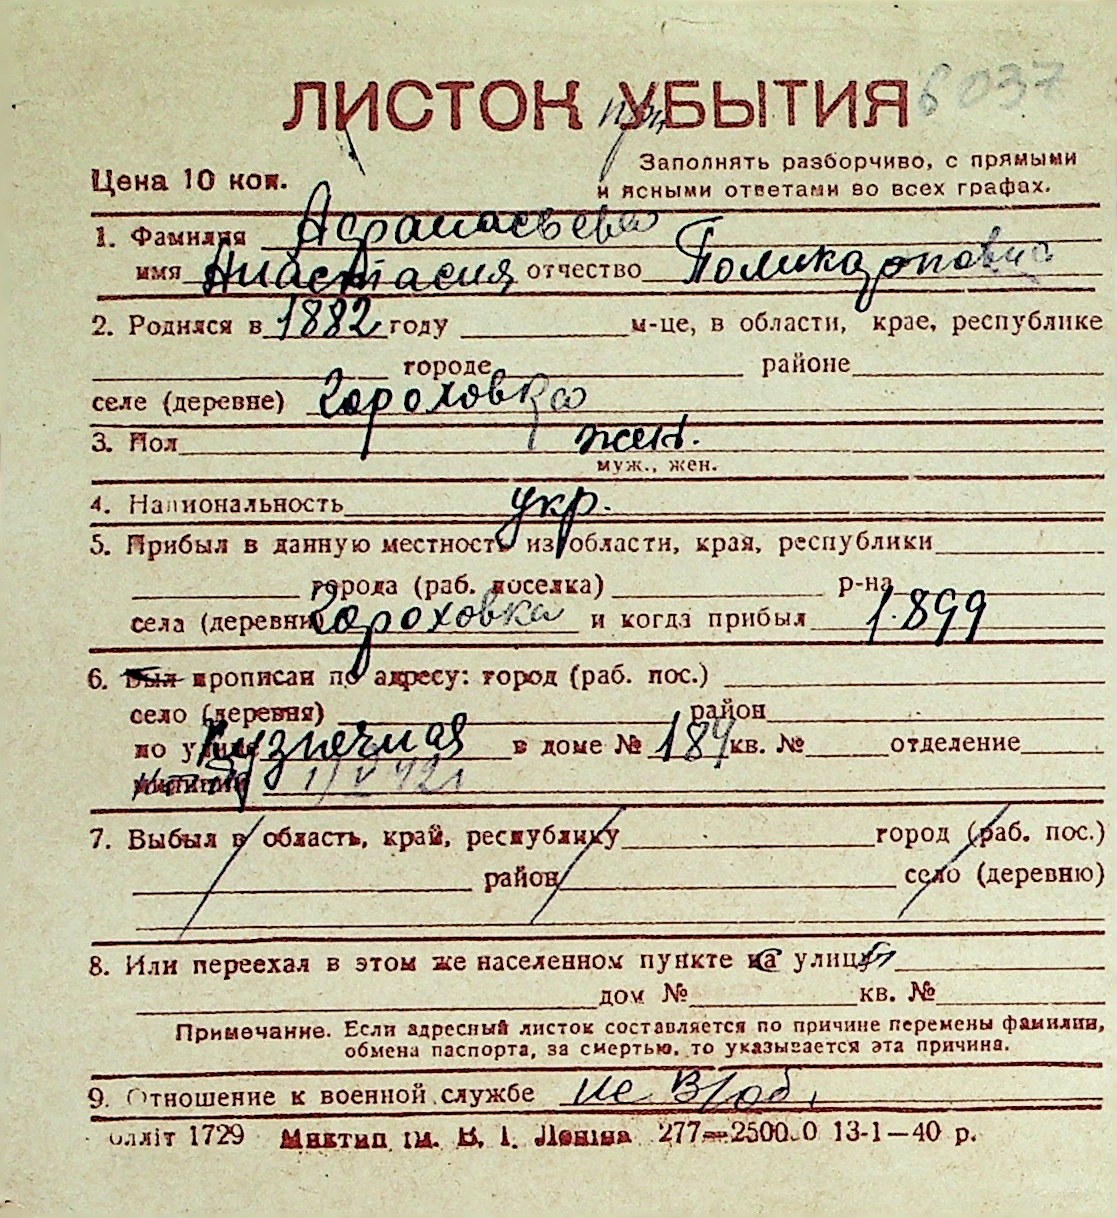 ЛИСТОК УБЫТИЯ 6037
при
Заполнять разборчиво, с прямыми
Цена 10 коп. и ясными ответами во всех графах.
1. Фамилия Афанасьева
имя Анастасия отчество Поликарповна
2. Родился в 1882 году м-це, в области, крае, республике
городе районе
селе (деревне) Гороховка
3. Пол жен.
муж., жен.
4. Национальность укр.
5. Прибыл в данную местность из области, края, республики
города (раб. поселка) р-на
села (деревни) Гороховка и когда прибыл 1899
6. Был прописан по адресу: город (раб. пос.)
село (деревня) район
по улице Кузнечная в доме № 184 кв. № отделение
милиции
7. Выбыл в область, край, республику город (раб. пос.)
район село (деревню)
8. Или переехал в этом же населенном пункте на улицу
дом № кв. №
Примечание. Если адресный листок составляется по причине перемены фамилии,
обмена паспорта, за смертью, то указывается эта причина.
9. Отношение к военной службе не в/об.
олліт 1729 Миктип ім. В. І. Леніна 277—2500.0 13-1—40 р.